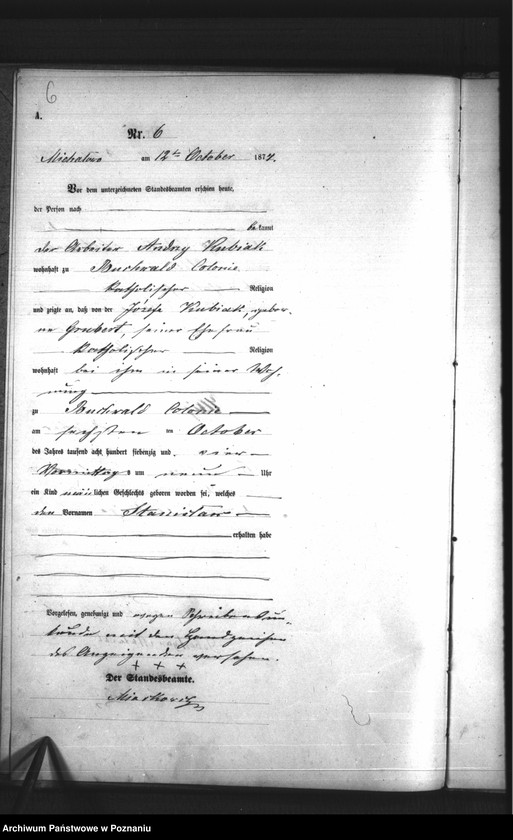 6
A.
Nr. 6
Michalowo am 12ten October 1874.
Vor dem unterzeichneten Standesbeamten erschien heute,
der Person nach
bekannt
der Arbeiter Andrzy Kubiak
wohnhaft zu Buchwald Colonie
katholischer Religion
und zeigte an, daß von der Józefa Kubiak, gebor-
ne Grubert, seiner Ehefrau
katholischer Religion
wohnhaft bei ihm in seiner Woh-
nung
zu Buchwald Colonie
am sechsten ten October
des Jahres tausend acht hundert siebenzig und vier
Vormittags um neun Uhr
ein Kind männlichen Geschlechts geboren worden sei, welches
den Vornamen Stanislaw
erhalten habe
Vorgelesen, genehmigt und wegen Schreibensun-
kunde mit den Handzeichen
des Anzeigenden versehen.
+ + +
Der Standesbeamte.
Archiwum Państwowe w Poznaniu